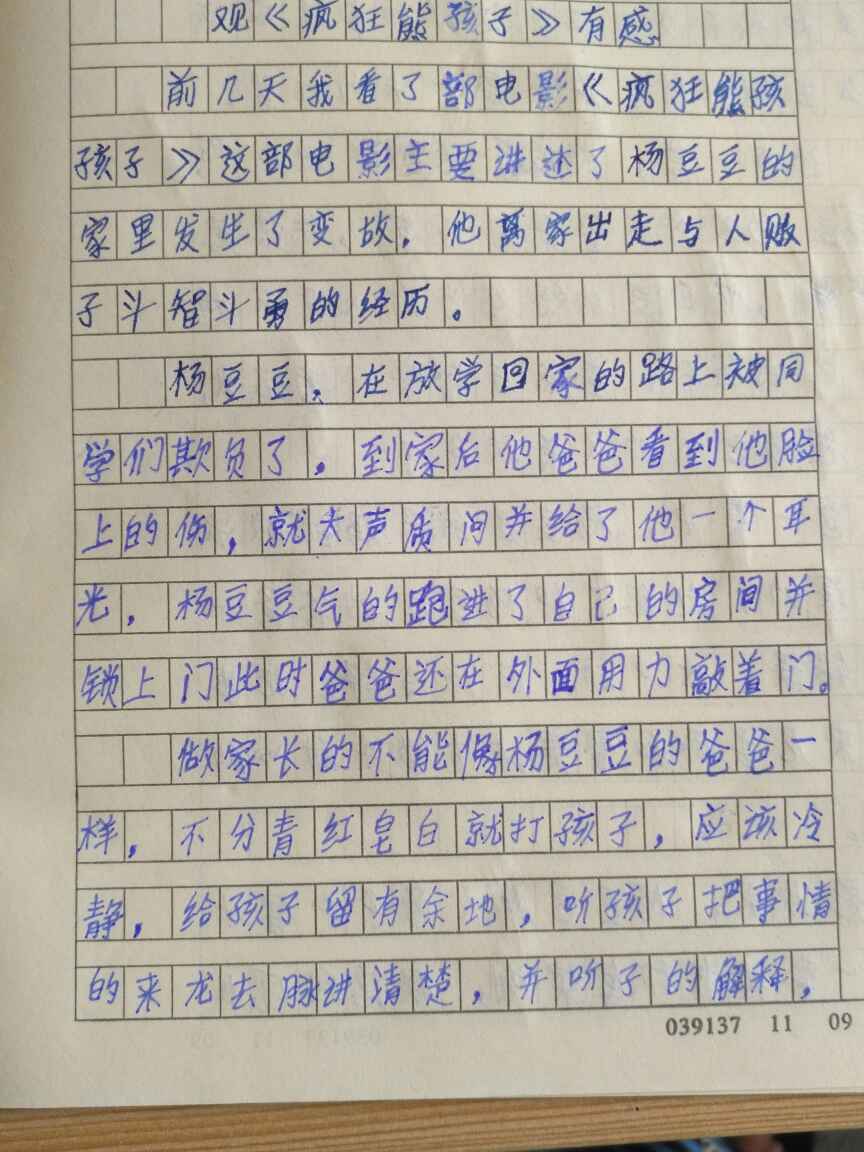 观《疯狂熊孩子》有感
前几天我看了部电影《疯狂熊孩
孩子》这部电影主要讲述了杨豆豆的
家里发生了变故，他离家出走与人贩
子斗智斗勇的经历。
杨豆豆，在放学回家的路上被同
学们欺负了，到家后他爸爸看到他脸
上的伤，就大声质问并给了他一个耳
光，杨豆豆气的跑进了自己的房间并
锁上门此时爸爸还在外面用力敲着门。
做家长的不能像杨豆豆的爸爸一
样，不分青红皂白就打孩子，应该冷
静，给孩子留有余地，听孩子把事情
的来龙去脉讲清楚，并听子的解释，
039137 11 09